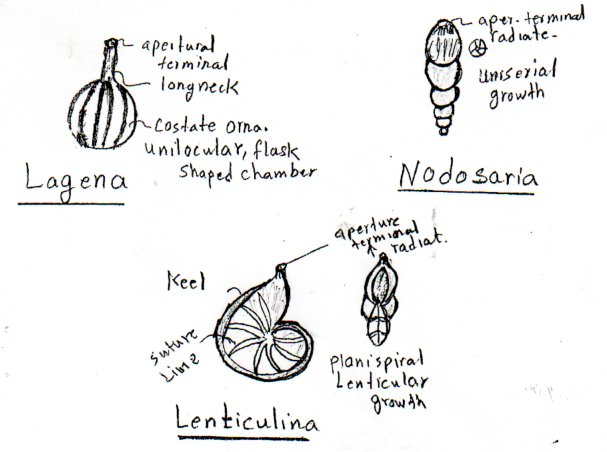 apertural
terminal
longneck
Costate orna.
unilocular, flask
shaped chamber
Lagena
aper. terminal
radiate.
Uniserial
growth
Nodosaria
aperture
terminal
radiat.
Keel
Suture
Planispiral
Lenticular
growth
Lenticulina